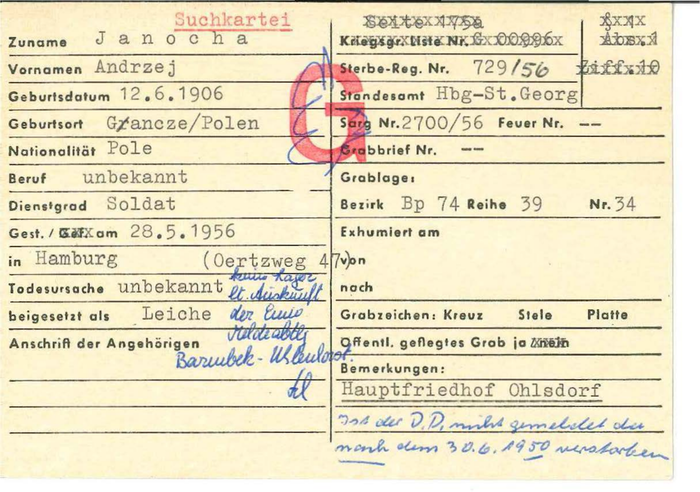 Suchkartei
Zuname Janocha
Vornamen Andrzej
Geburtsdatum 12.6.1906
Geburtsort Grancze/Polen
Nationalität Pole
Beruf unbekannt
Dienstgrad Soldat
Gest. / Gef. am 28.5.1956
in Hamburg (Oertzweg 47)
Todesursache unbekannt
beigesetzt als Leiche
Anschrift der Angehörigen
keine Lager
lt. Auskunft
der Einw
Meldeabtlg
Barmbek-Uhlenhorst.
G
Seite 175a § 1
Kriegsgr. Liste Nr. G 00996 Abs.1
Sterbe-Reg. Nr. 729/56 Ziff.10
Standesamt Hbg-St.Georg
Sarg Nr. 2700/56 Feuer Nr. --
Grabbrief Nr. --
Grablage:
Bezirk Bp 74 Reihe 39 Nr. 34
Exhumiert am
von
nach
Grabzeichen: Kreuz Stele Platte
Öffentl. gepflegtes Grab ja / nein
Bemerkungen:
Hauptfriedhof Ohlsdorf
Ist der D.D. nicht gemeldet da
nach dem 30.6.1950 verstorben